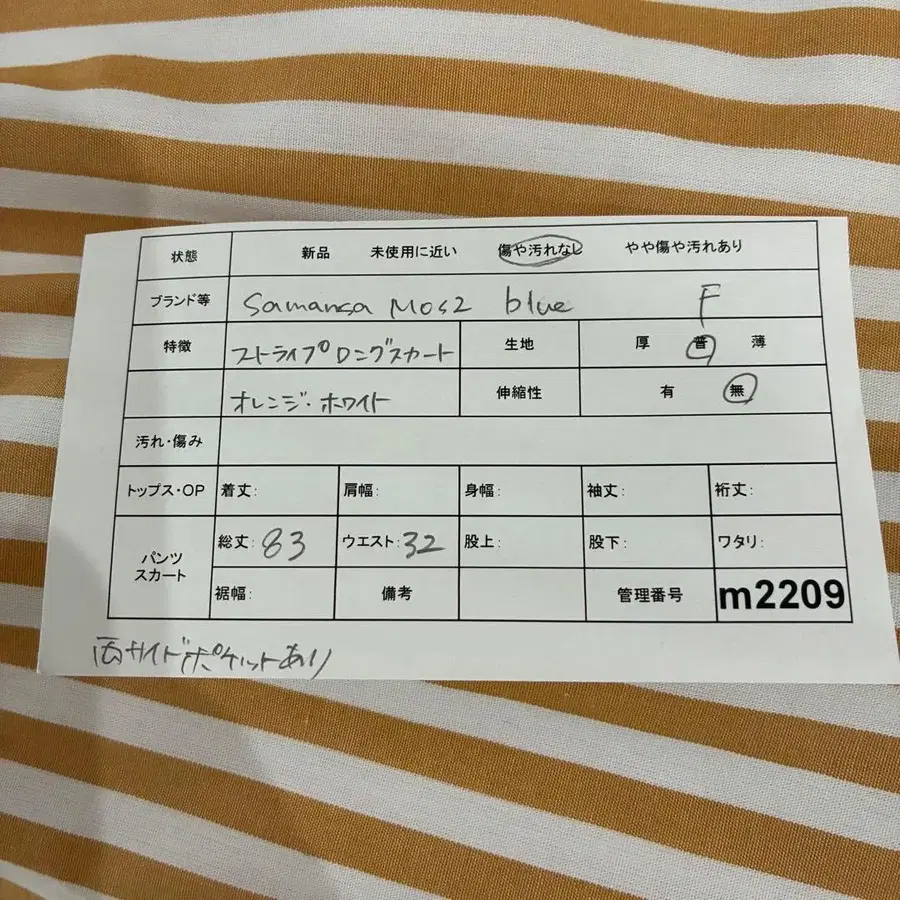 状態 新品 未使用に近い 傷や汚れなし やや傷や汚れあり
ブランド等 Samansa Mos2 blue F
特徴 ストライプロングスカート 生地 厚 普 薄
オレンジ・ホワイト 伸縮性 有 無
汚れ・傷み
トップス・OP 着丈: 肩幅: 身幅: 袖丈: 裄丈:
パンツ スカート 総丈: 83 ウエスト: 32 股上: 股下: ワタリ:
裾幅: 備考 管理番号 m2209
両サイドポケットあり